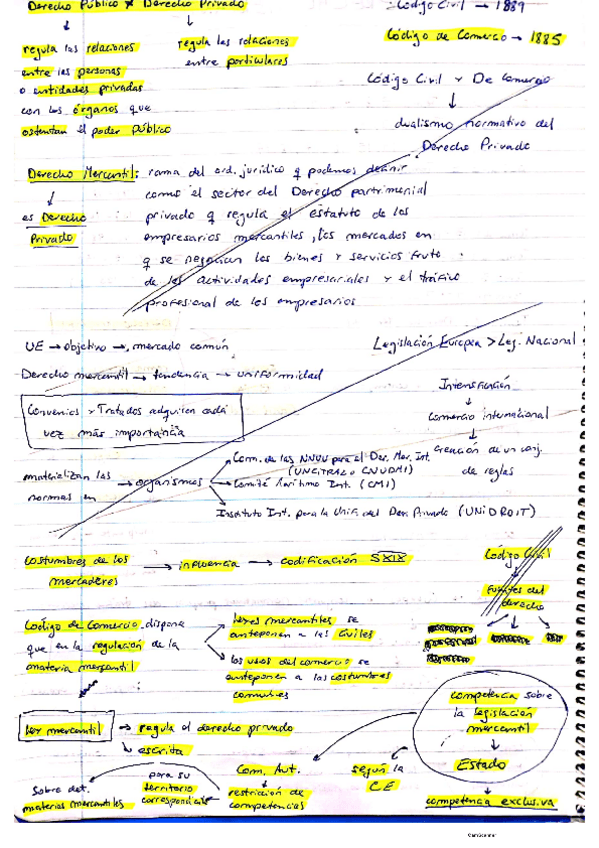 Derecho Público ≠ Derecho Privado
regula las relaciones
entre las personas
o entidades privadas
con los órganos que
ostentan el poder público
regula las relaciones
entre particulares
Código Civil → 1889
Código de Comercio → 1885
Código Civil y De Comercio
dualismo normativo del
Derecho Privado
Derecho Mercantil: rama del ord. jurídico q podemos definir
como el sector del Derecho patrimonial
privado q regula el estatuto de los
empresarios mercantiles, los mercados en
q se negocian los bienes y servicios fruto
de las actividades empresariales y el tráfico
profesional de los empresarios
es Derecho
Privado
UE → objetivo → mercado común
Derecho mercantil → tendencia → uniformidad
Convenios y Tratados adquieren cada
vez más importancia
Legislación Europea > Leg. Nacional
Intensificación
Comercio internacional
Creación de un conj.
de reglas
materializan las
normas en
→ organismos
Com. de las NNUU para el Der. Mer. Int.
(UNCITRAL o CNUDMI)
Comité Marítimo Int. (CMI)
Instituto Int. para la Unif. del Der. Privado (UNIDROIT)
costumbres de los
mercaderes
→ influencia → codificación SXIX
Código Civil
Fuentes del
derecho
Código de Comercio dispone
que en la regulación de la
materia mercantil
leyes mercantiles se
anteponen a las civiles
los usos del comercio se
anteponen a las costumbres
comunes
competencia sobre
la legislación
mercantil
Estado
competencia exclusiva
Ley mercantil → regula el derecho privado
escrita
Com. Aut.
restricción de
competencias
según la
CE
para su
territorio
correspondiente
Sobre det.
materias mercantiles
CamScanner